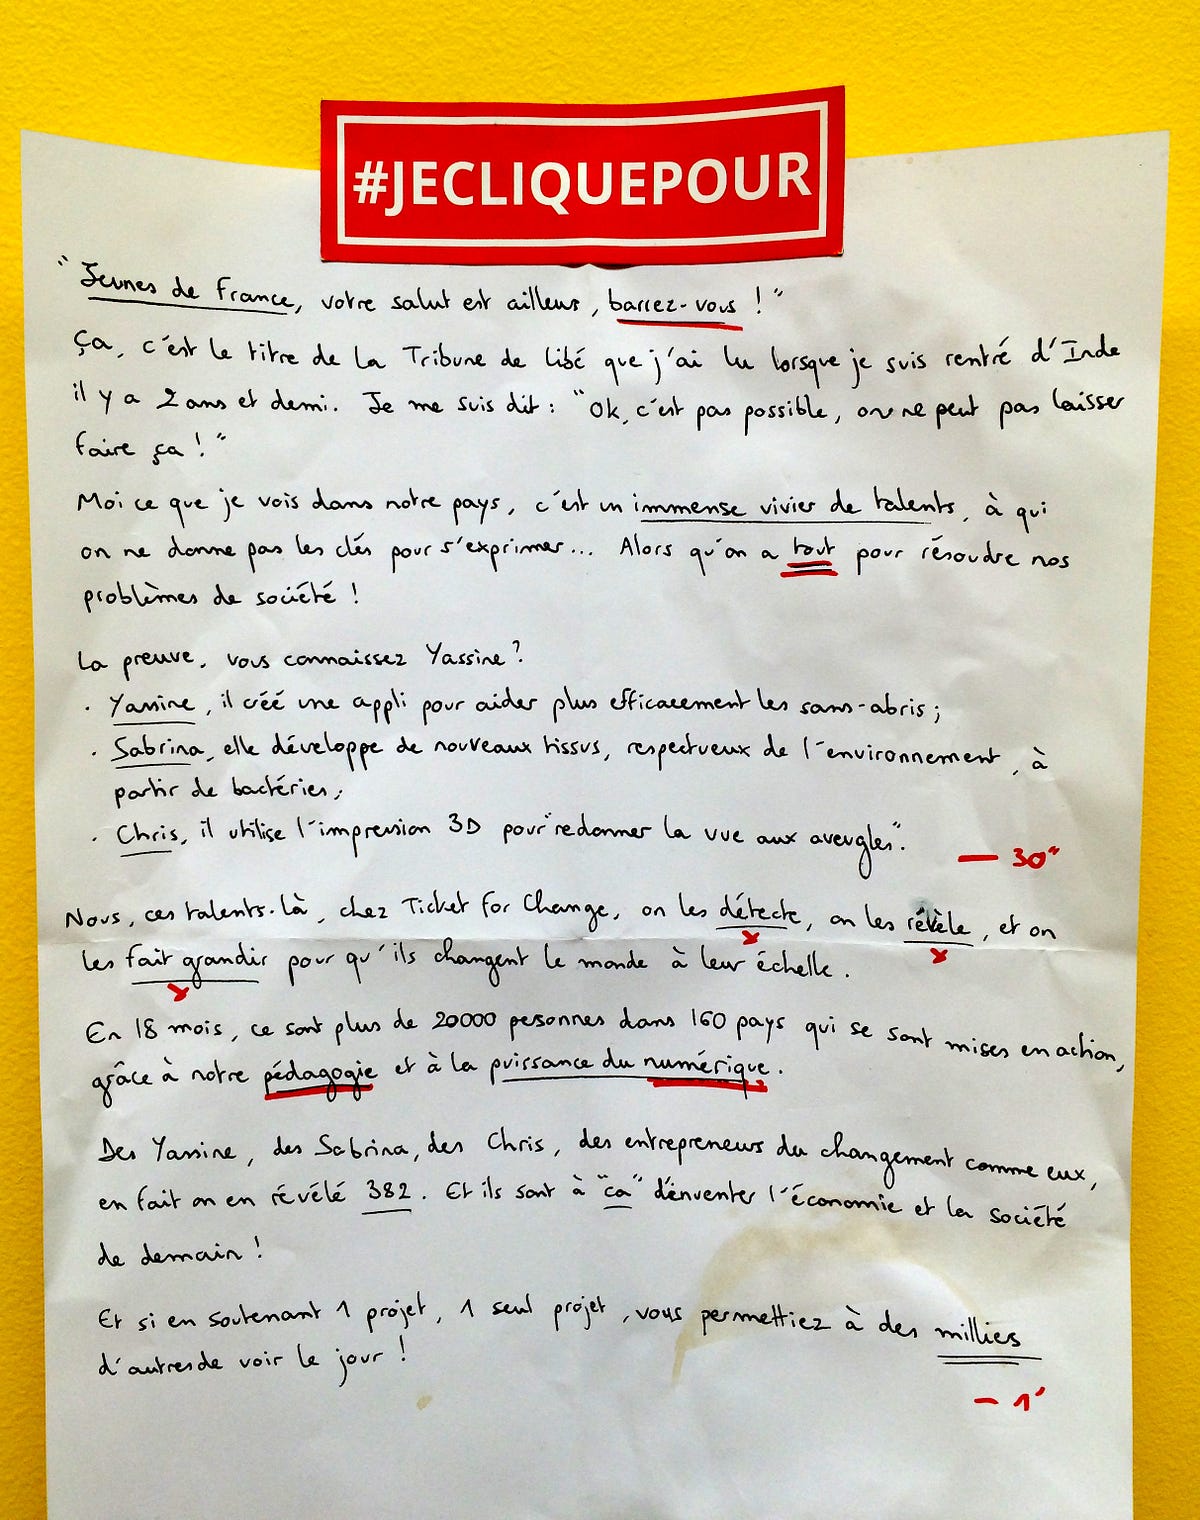 #JECLIQUEPOUR
"Jeunes de France, votre salut est ailleurs, barrez-vous !"
Ça, c'est le titre de la Tribune de Libé que j'ai lu lorsque je suis rentré d'Inde
il y a 2 ans et demi. Je me suis dit : "Ok, c'est pas possible, on ne peut pas laisser
faire ça !"
Moi ce que je vois dans notre pays, c'est un immense vivier de talents, à qui
on ne donne pas les clés pour s'exprimer... Alors qu'on a tout pour résoudre nos
problèmes de société !
La preuve, vous connaissez Yassine ?
· Yassine, il créé une appli pour aider plus efficacement les sans-abris ;
· Sabrina, elle développe de nouveaux tissus, respectueux de l'environnement, à
partir de bactéries ;
· Chris, il utilise l'impression 3D pour "redonner la vue aux aveugles".
— 30"
Nous, ces talents-là, chez Ticket for Change, on les détecte, on les révèle, et on
les fait grandir pour qu'ils changent le monde à leur échelle.
En 18 mois, ce sont plus de 20000 pesonnes dans 160 pays qui se sont mises en action,
grâce à notre pédagogie et à la puissance du numérique.
Des Yassine, des Sabrina, des Chris, des entrepreneurs du changement comme eux,
en fait on en révélé 382. Et ils sont à "ça" d'inventer l'économie et la société
de demain !
Et si en soutenant 1 projet, 1 seul projet, vous permettiez à des milliers
d'autres de voir le jour !
— 1'